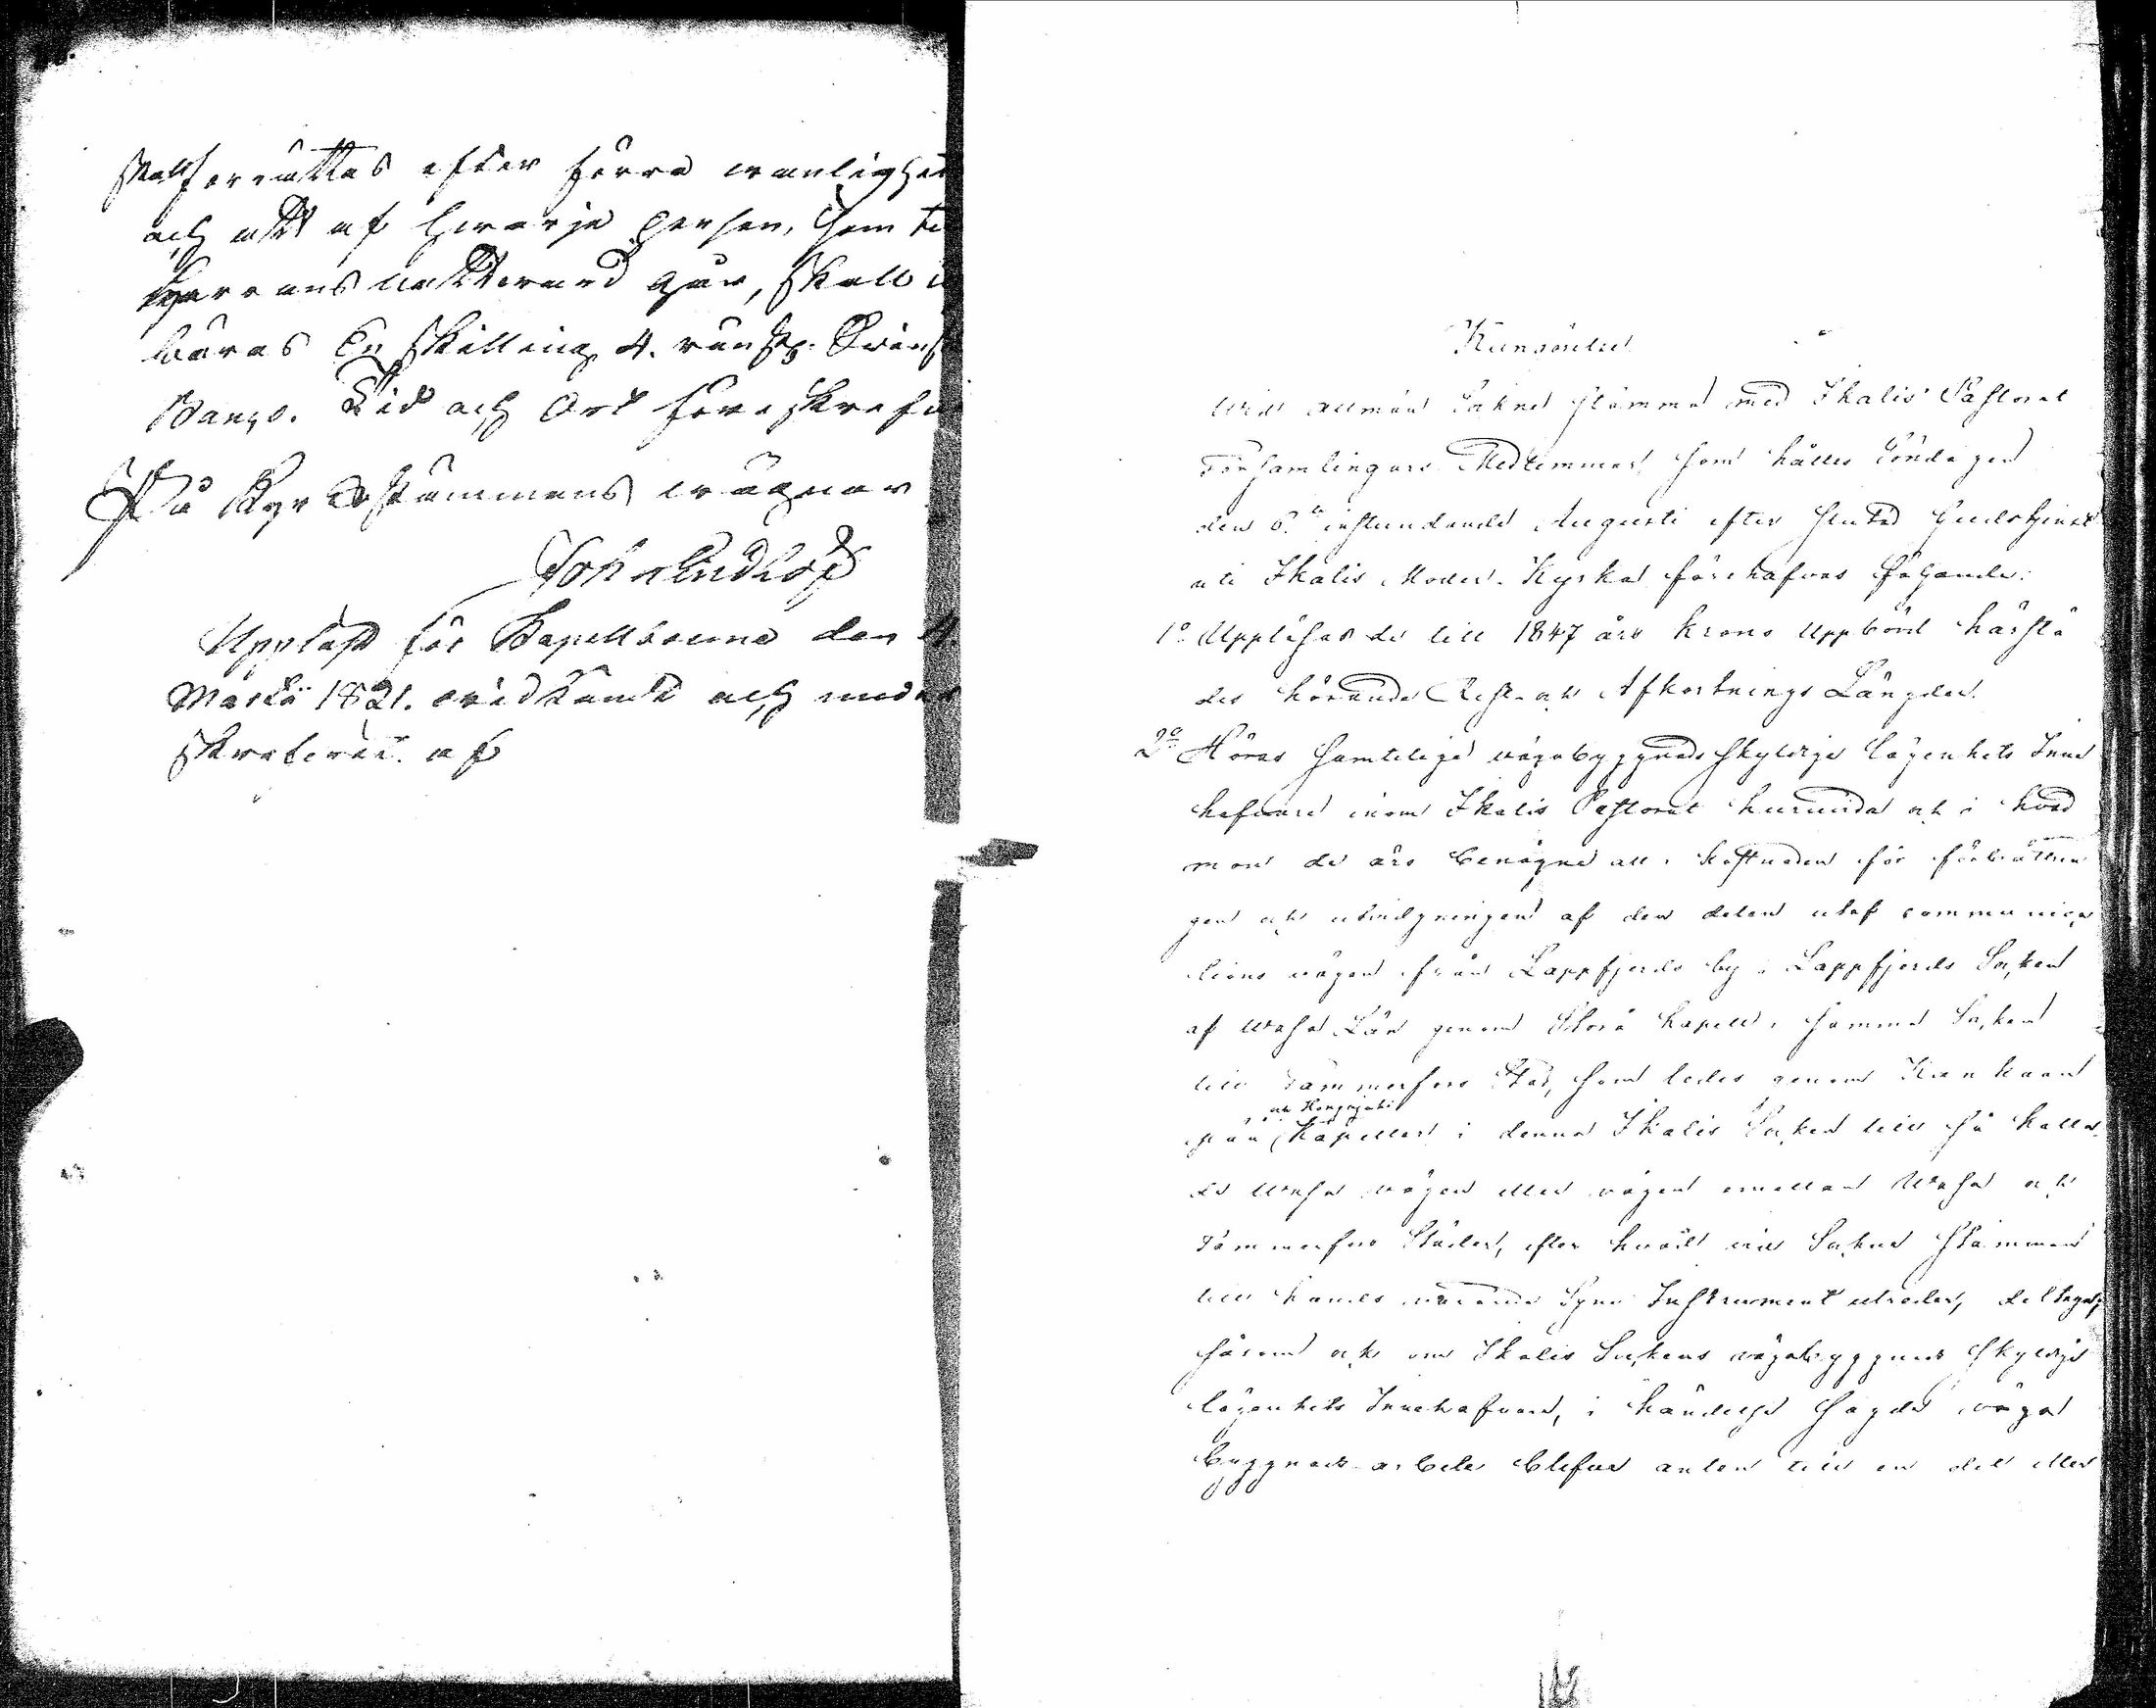 skall förrättas efter förra wanlighet
och att af hwarje person, som ti
Herrans nattward går, skall
bäras En skilling 4. runst. Svensk
Banco. Tid och Ort föreskrefne
På Kyrkostämmans wägnar
Joh. Lindlöf
Upplast för Kapellboerne den 4
Martii 1821. widkändt och under
skrefwet af
Kungörelse
Wid allmän Sockne stämma med Ikalis Pastorat
Församlingars Medlemmar som hålles Söndagen
den 6te instundande Augusti efter slutad Gudstjenst
uti Ikalis Moder-Kyrka förehafvas följande:
1o Uppläsas de till 1847 års Krono Uppbörd härstä
des hörande Rest- och Afkortnings Längder.
2o Höras samtelige vägabyggnads skyldige lägenhets Inne
hafvare inom Ikalis Pastorat huruvida och i hvad
mon de äro benägne att i kostnaden för förbättrin
gen och utvidgningen af den delen utaf communica
tions vägen från Lappfjerds by i Lappfjerds Socken
af Wasa Län genom Storå Kapell i samma Socken
till Tammerfors Stad, som ledes genom Kankaan
pää och Honjajoki Kapeller i denna Ikalis Socken till så kalla
de Wasa vägen eller vägen emellan Wasa och
Tammerfors Städer, efter hvad vid Sockne Stämman
till hands varande Syne Instrument utreder, deltaga;
såsom och om Ikalis Sockens vägabyggnads skyldige
lägenhets Innehafvare, i händelse sagde väga
byggnads arbete blefve anten till en del eller